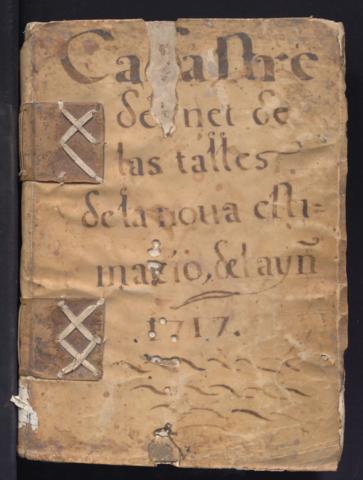 Cadastre
del net de
las talles
de la noua esti=
mazio, del ayñ
1717.